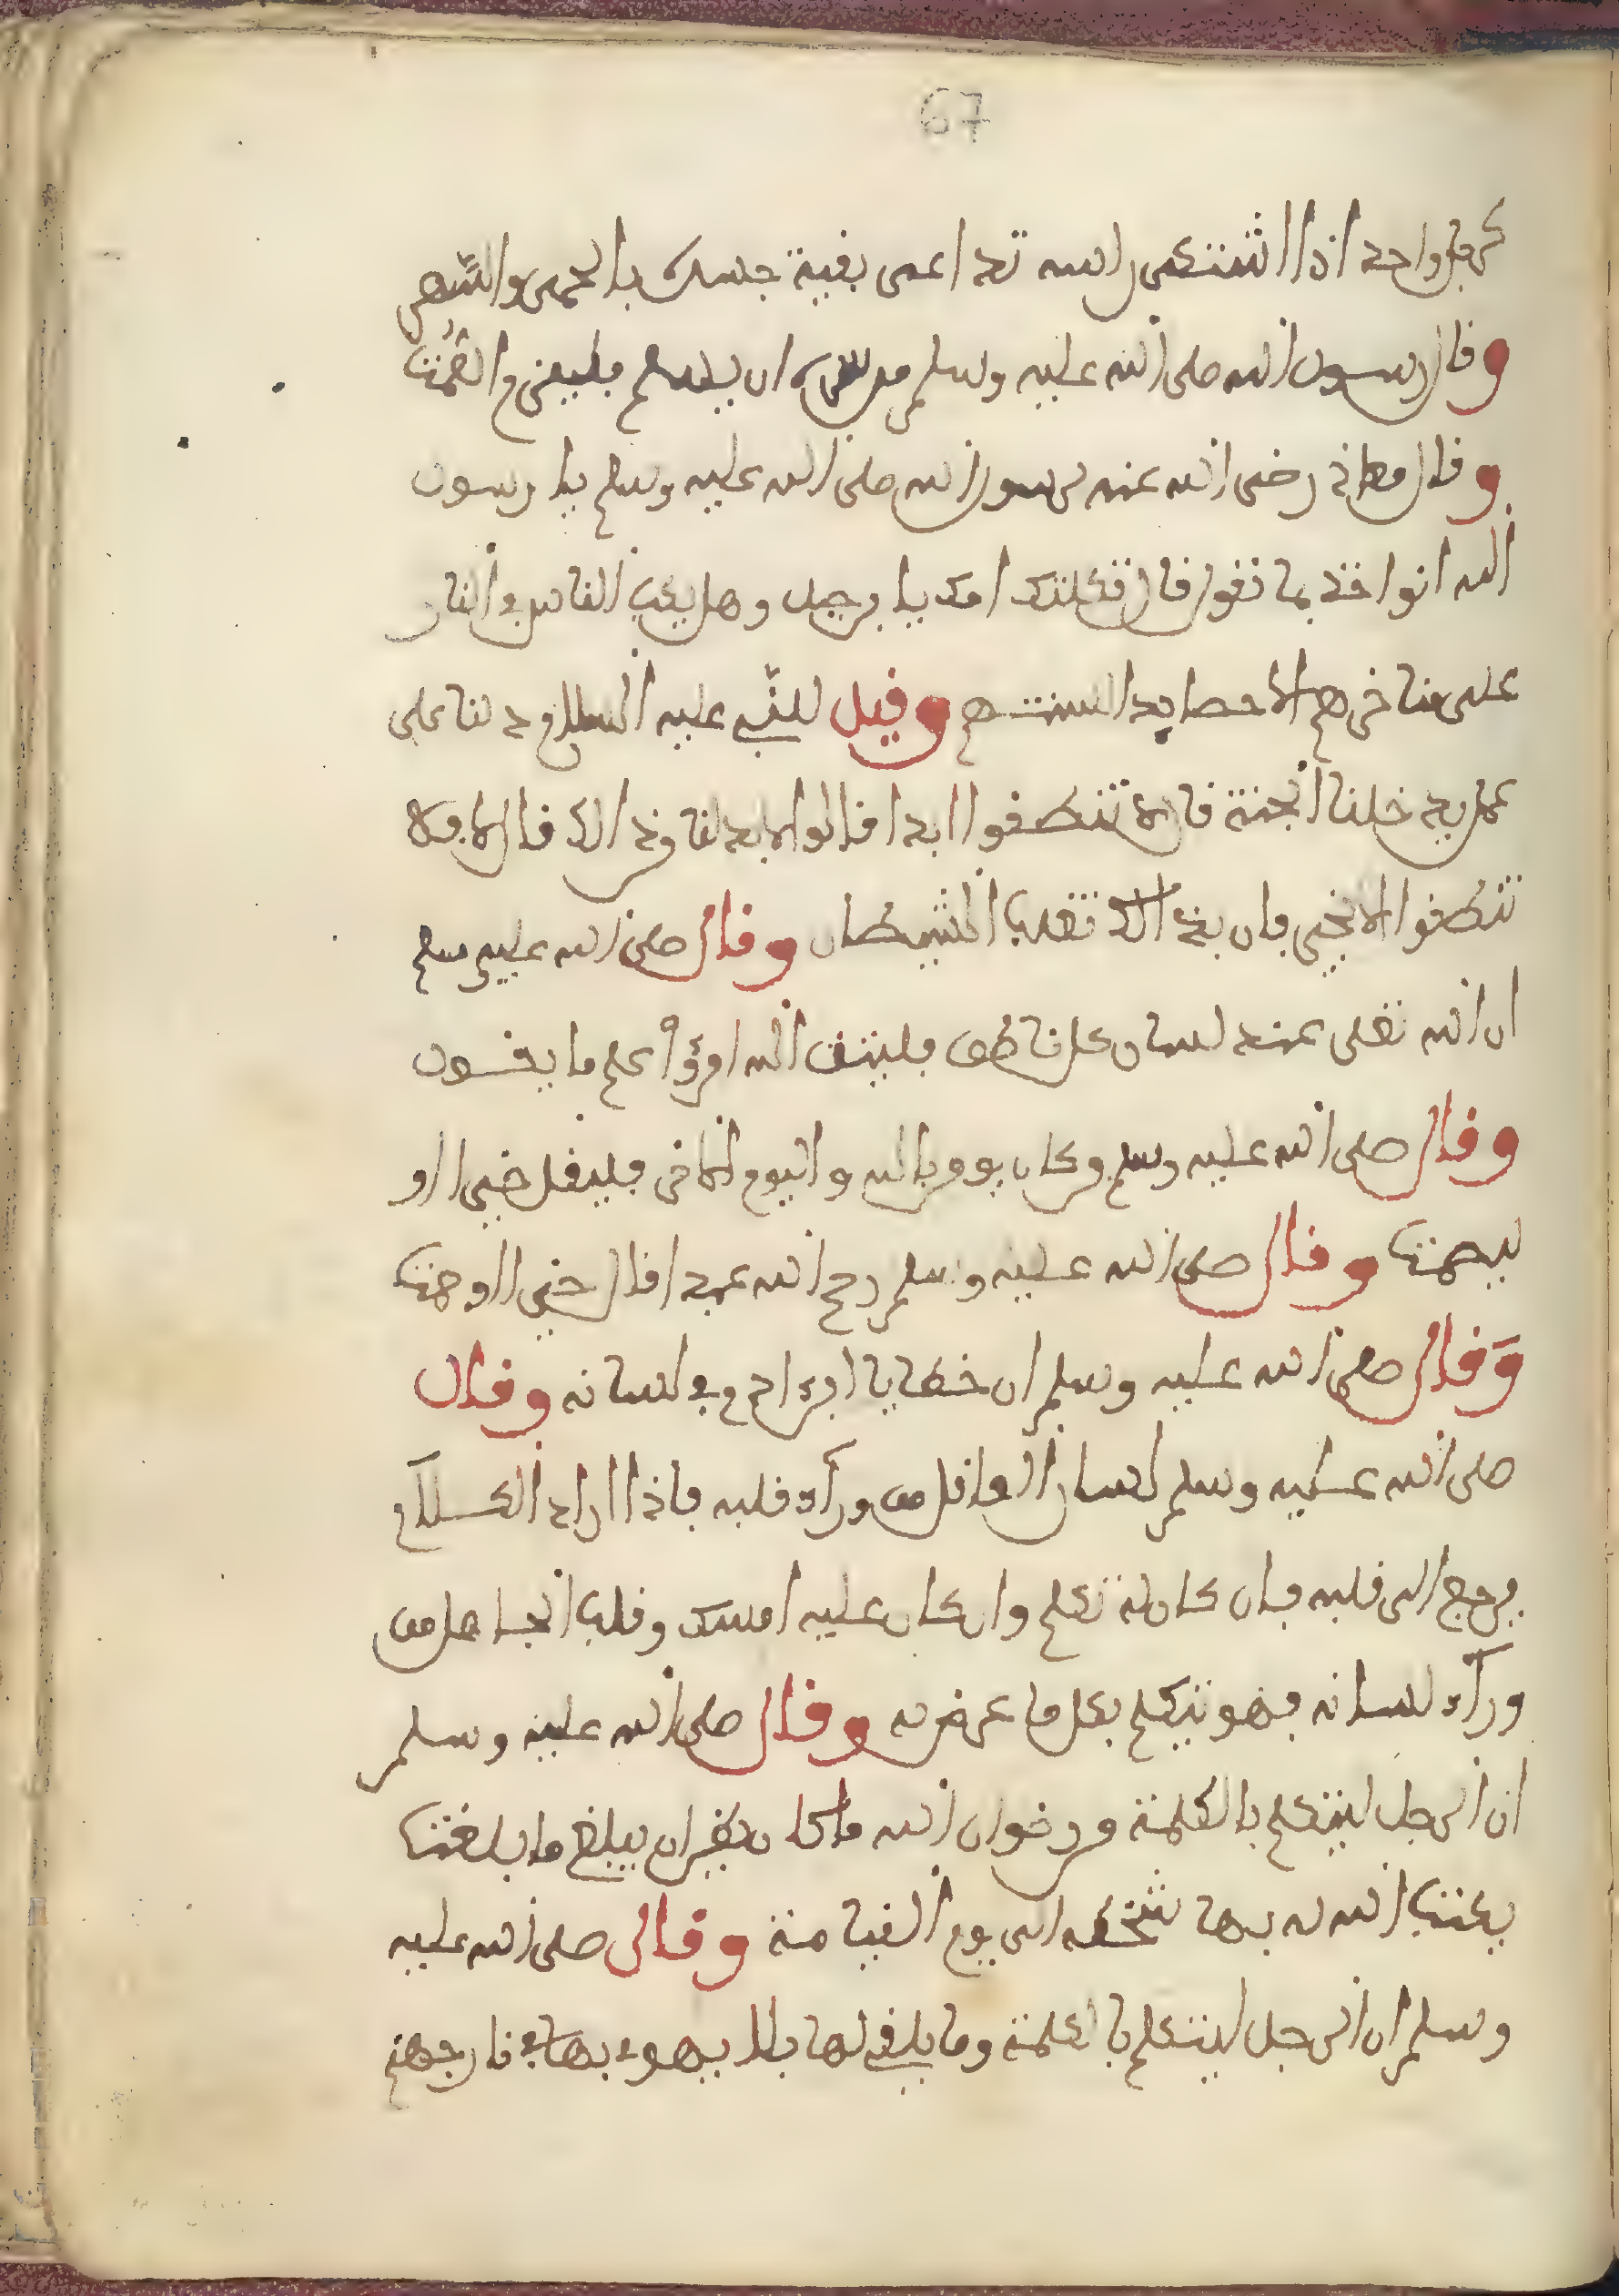 67
كرجل واحد اذا اشتكى راسه تداعى بقية جسده بالحمى والسهر
وقال رسول الله صلى الله عليه وسلم من سره ان يسلم فليلزم الصمت
وقال معاذ رضى الله عنه لرسول الله صلى الله عليه وسلم يا رسول
الله انواخذ بما نقول قال ثكلتك امك يا بن جبل وهل يكب الناس في النار
على مناخرهم الا حصايد السنتهم وقيل للنبي عليه السلام دلنا على
عمل يدخلنا الجنة قال لا تنطقوا ابدا قالوا لا بد لنا من ذالك قال لا فلا
تنطقوا الا بخير فان بذالك تغلب الشيطان وقال صلى الله عليه وسلم
ان الله تعلى عند لسان كل ناطق فليتق الله امرؤ أعلم ما يقول
وقال صلى الله عليه وسلم من كان يومن بالله واليوم الاخر فليقل خيرا او
ليصمت وقال صلى الله عليه وسلم رحم الله عبدا قال خيرا او صمت
وقال صلى الله عليه وسلم ان خطايا ابن ادم في لسانه وقال
صلى الله عليه وسلم لسان العاقل من ورآء قلبه فاذا اراد الكلام
يرجع الى قلبه فان كان له تكلم وان كان عليه امسك وقلب الجاهل من
ورآء لسانه فهو يتكلم بكل ما عرض له وقال صلى الله عليه وسلم
ان الرجل ليتكلم بالكلمة من رضوان الله ما كان يظن ان يبلغ ما بلغت
يكتب الله له بها سخطه الى يوم القيامة وقال صلى الله عليه
وسلم ان الرجل ليتكلم بالكلمة وما يلقي لها بالا يهوي بها في نار جهنم